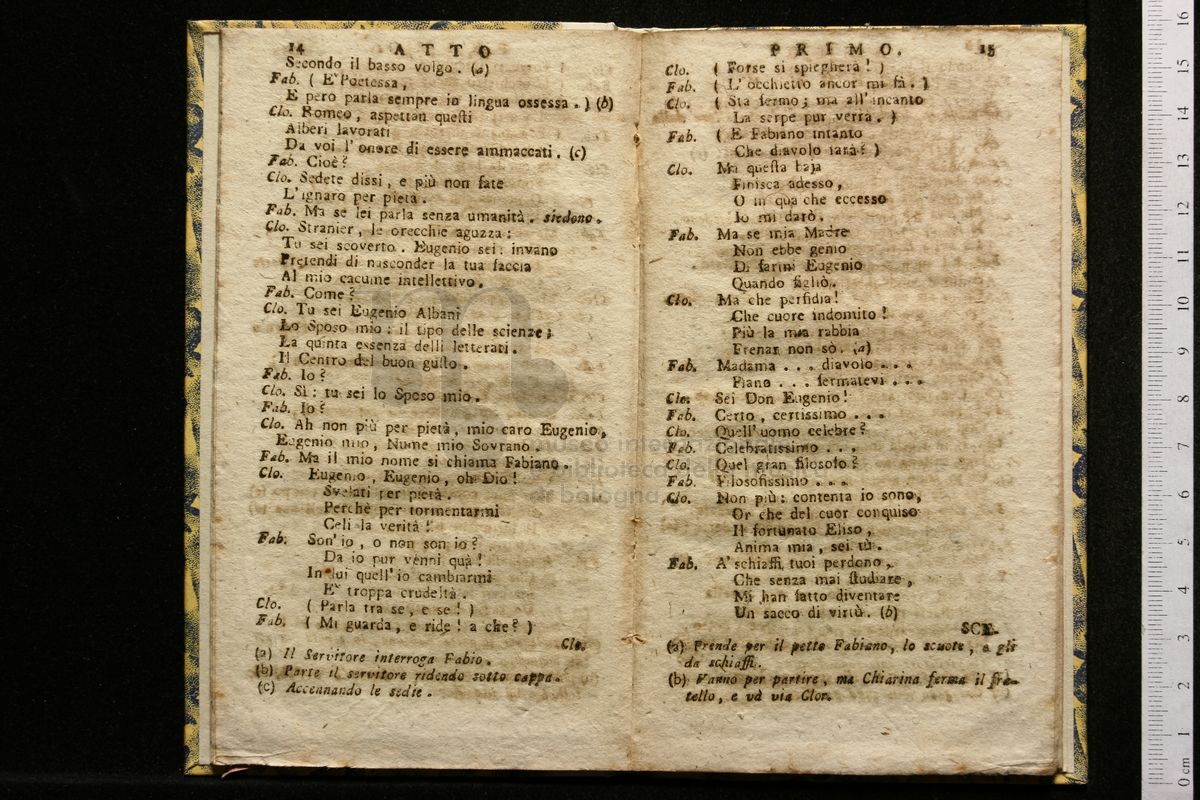 14 ATTO
Secondo il basso volgo. (a)
Fab. ( E' Poetessa,
E però parla sempre in lingua ossessa. ) (b)
Clo. Romeo, aspettan questi
Alberi lavorati
Da voi l'onore di essere ammaccati. (c)
Fab. Cioè?
Clo. Sedete dissi, e più non fate
L'ignaro per pietà.
Fab. Ma se lei parla senza umanità. siedono.
Clo. Stranier, le orecchie aguzza:
Tu sei scoverto. Eugenio sei: invano
Pretendi di nasconder la tua faccia
Al mio cacume intellettivo.
Fab. Come?
Clo. Tu sei Eugenio Albani
Lo Sposo mio: il tipo delle scienze;
La quinta essenza delli letterati.
Il Centro del buon gusto.
Fab. Io?
Clo. Sì: tu sei lo Sposo mio.
Fab. Io?
Clo. Ah non più per pietà, mio caro Eugenio,
Eugenio mio, Nume mio Sovrano.
Fab. Ma il mio nome si chiama Fabiano.
Clo. Eugenio, Eugenio, oh Dio!
Svelati per pietà.
Perchè per tormentarmi
Celi la verità!
Fab. Son' io, o non son io?
Da io pur venni quà!
In lui quell' io cambiarmi
E' troppa crudeltà.
Clo. ( Parla tra se, e se! )
Fab. ( Mi guarda, e ride! a che? )
Clo.
(a) Il Servitore interroga Fabio.
(b) Parte il servitore ridendo sotto cappa.
(c) Accennando le sedie.
PRIMO. 15
Clo. ( Forse si spiegherà! )
Fab. ( L' occhietto ancor mi fà. )
Clo. ( Sta fermo; ma all' incanto
La serpe pur verrà. )
Fab. ( E Fabiano intanto
Che diavolo farà? )
Clo. Ma questa baja
Finisca adesso,
O in qualche eccesso
Io mi darò.
Fab. Ma se mia Madre
Non ebbe genio
Di farmi Eugenio
Quando figliò.
Clo. Ma che perfidia!
Che cuore indomito!
Più la mia rabbia
Frenar non sò. (a)
Fab. Madama . . . diavolo . . .
Piano . . . fermatevi . . .
Clo. Sei Don Eugenio!
Fab. Certo, certissimo . . .
Clo. Quell' uomo celebre?
Fab. Celebratissimo . . .
Clo. Quel gran filosofo?
Fab. Filosofissimo . . .
Clo. Non più: contenta io sono,
Or che del cuor conquiso
Il fortunato Eliso,
Anima mia, sei tù.
Fab. A' schiaffi tuoi perdono,
Che senza mai studiare,
Mi han fatto diventare
Un sacco di virtù. (b)
SCE.
(a) Prende per il petto Fabiano, lo scuote, e gli
dà schiaffi.
(b) Vanno per partire, ma Chiarina ferma il fra-
tello, e và via Clor.
museo internazionale
biblioteca della
di bologna
16
15
14
13
12
11
10
9
8
7
6
5
4
3
2
1
0 cm